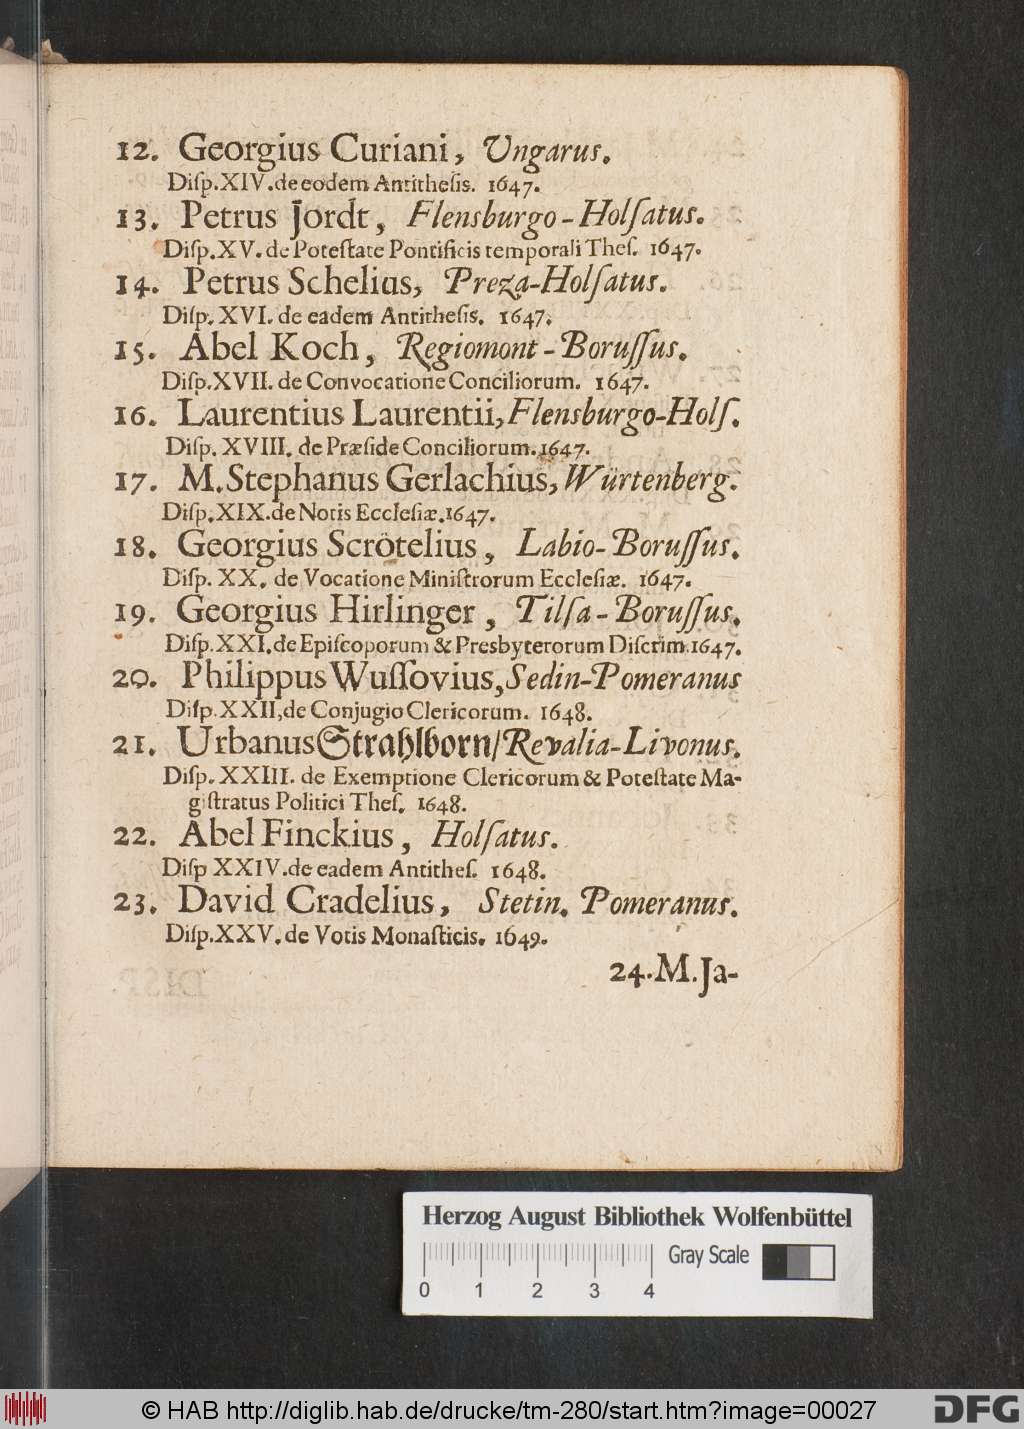 12. Georgius Curiani, Ungarus.
Diſp. XIV. de eodem Antitheſis. 1647.
13. Petrus Jordt, Flensburgo-Holſatus.
Diſp. XV. de Poteſtate Pontificis temporali Theſ. 1647.
14. Petrus Schelius, Preza-Holſatus.
Diſp. XVI. de eadem Antitheſis. 1647.
15. Abel Koch, Regiomont-Boruſſus.
Diſp. XVII. de Convocatione Conciliorum. 1647.
16. Laurentius Laurentii, Flensburgo-Holſ.
Diſp. XVIII. de Præſide Conciliorum. 1647.
17. M. Stephanus Gerlachius, Würtenberg.
Diſp. XIX. de Notis Eccleſiæ. 1647.
18. Georgius Scrötelius, Labio-Boruſſus.
Diſp. XX. de Vocatione Miniſtrorum Eccleſiæ. 1647.
19. Georgius Hirlinger, Tilſa-Boruſſus.
Diſp. XXI. de Epiſcoporum & Presbyterorum Diſcrim. 1647.
20. Philippus Wuſſovius, Sedin-Pomeranus
Diſp. XXII, de Conjugio Clericorum. 1648.
21. Urbanus Strahlborn/ Revalia-Livonus.
Diſp. XXIII. de Exemptione Clericorum & Poteſtate Ma-
giſtratus Politici Theſ. 1648.
22. Abel Finckius, Holſatus.
Diſp XXIV. de eadem Antitheſ. 1648.
23. David Cradelius, Stetin. Pomeranus.
Diſp. XXV. de Votis Monaſticis. 1649.
24. M. Ja-
Herzog August Bibliothek Wolfenbüttel
Gray Scale
0 1 2 3 4
© HAB http://diglib.hab.de/drucke/tm-280/start.htm?image=00027
DFG